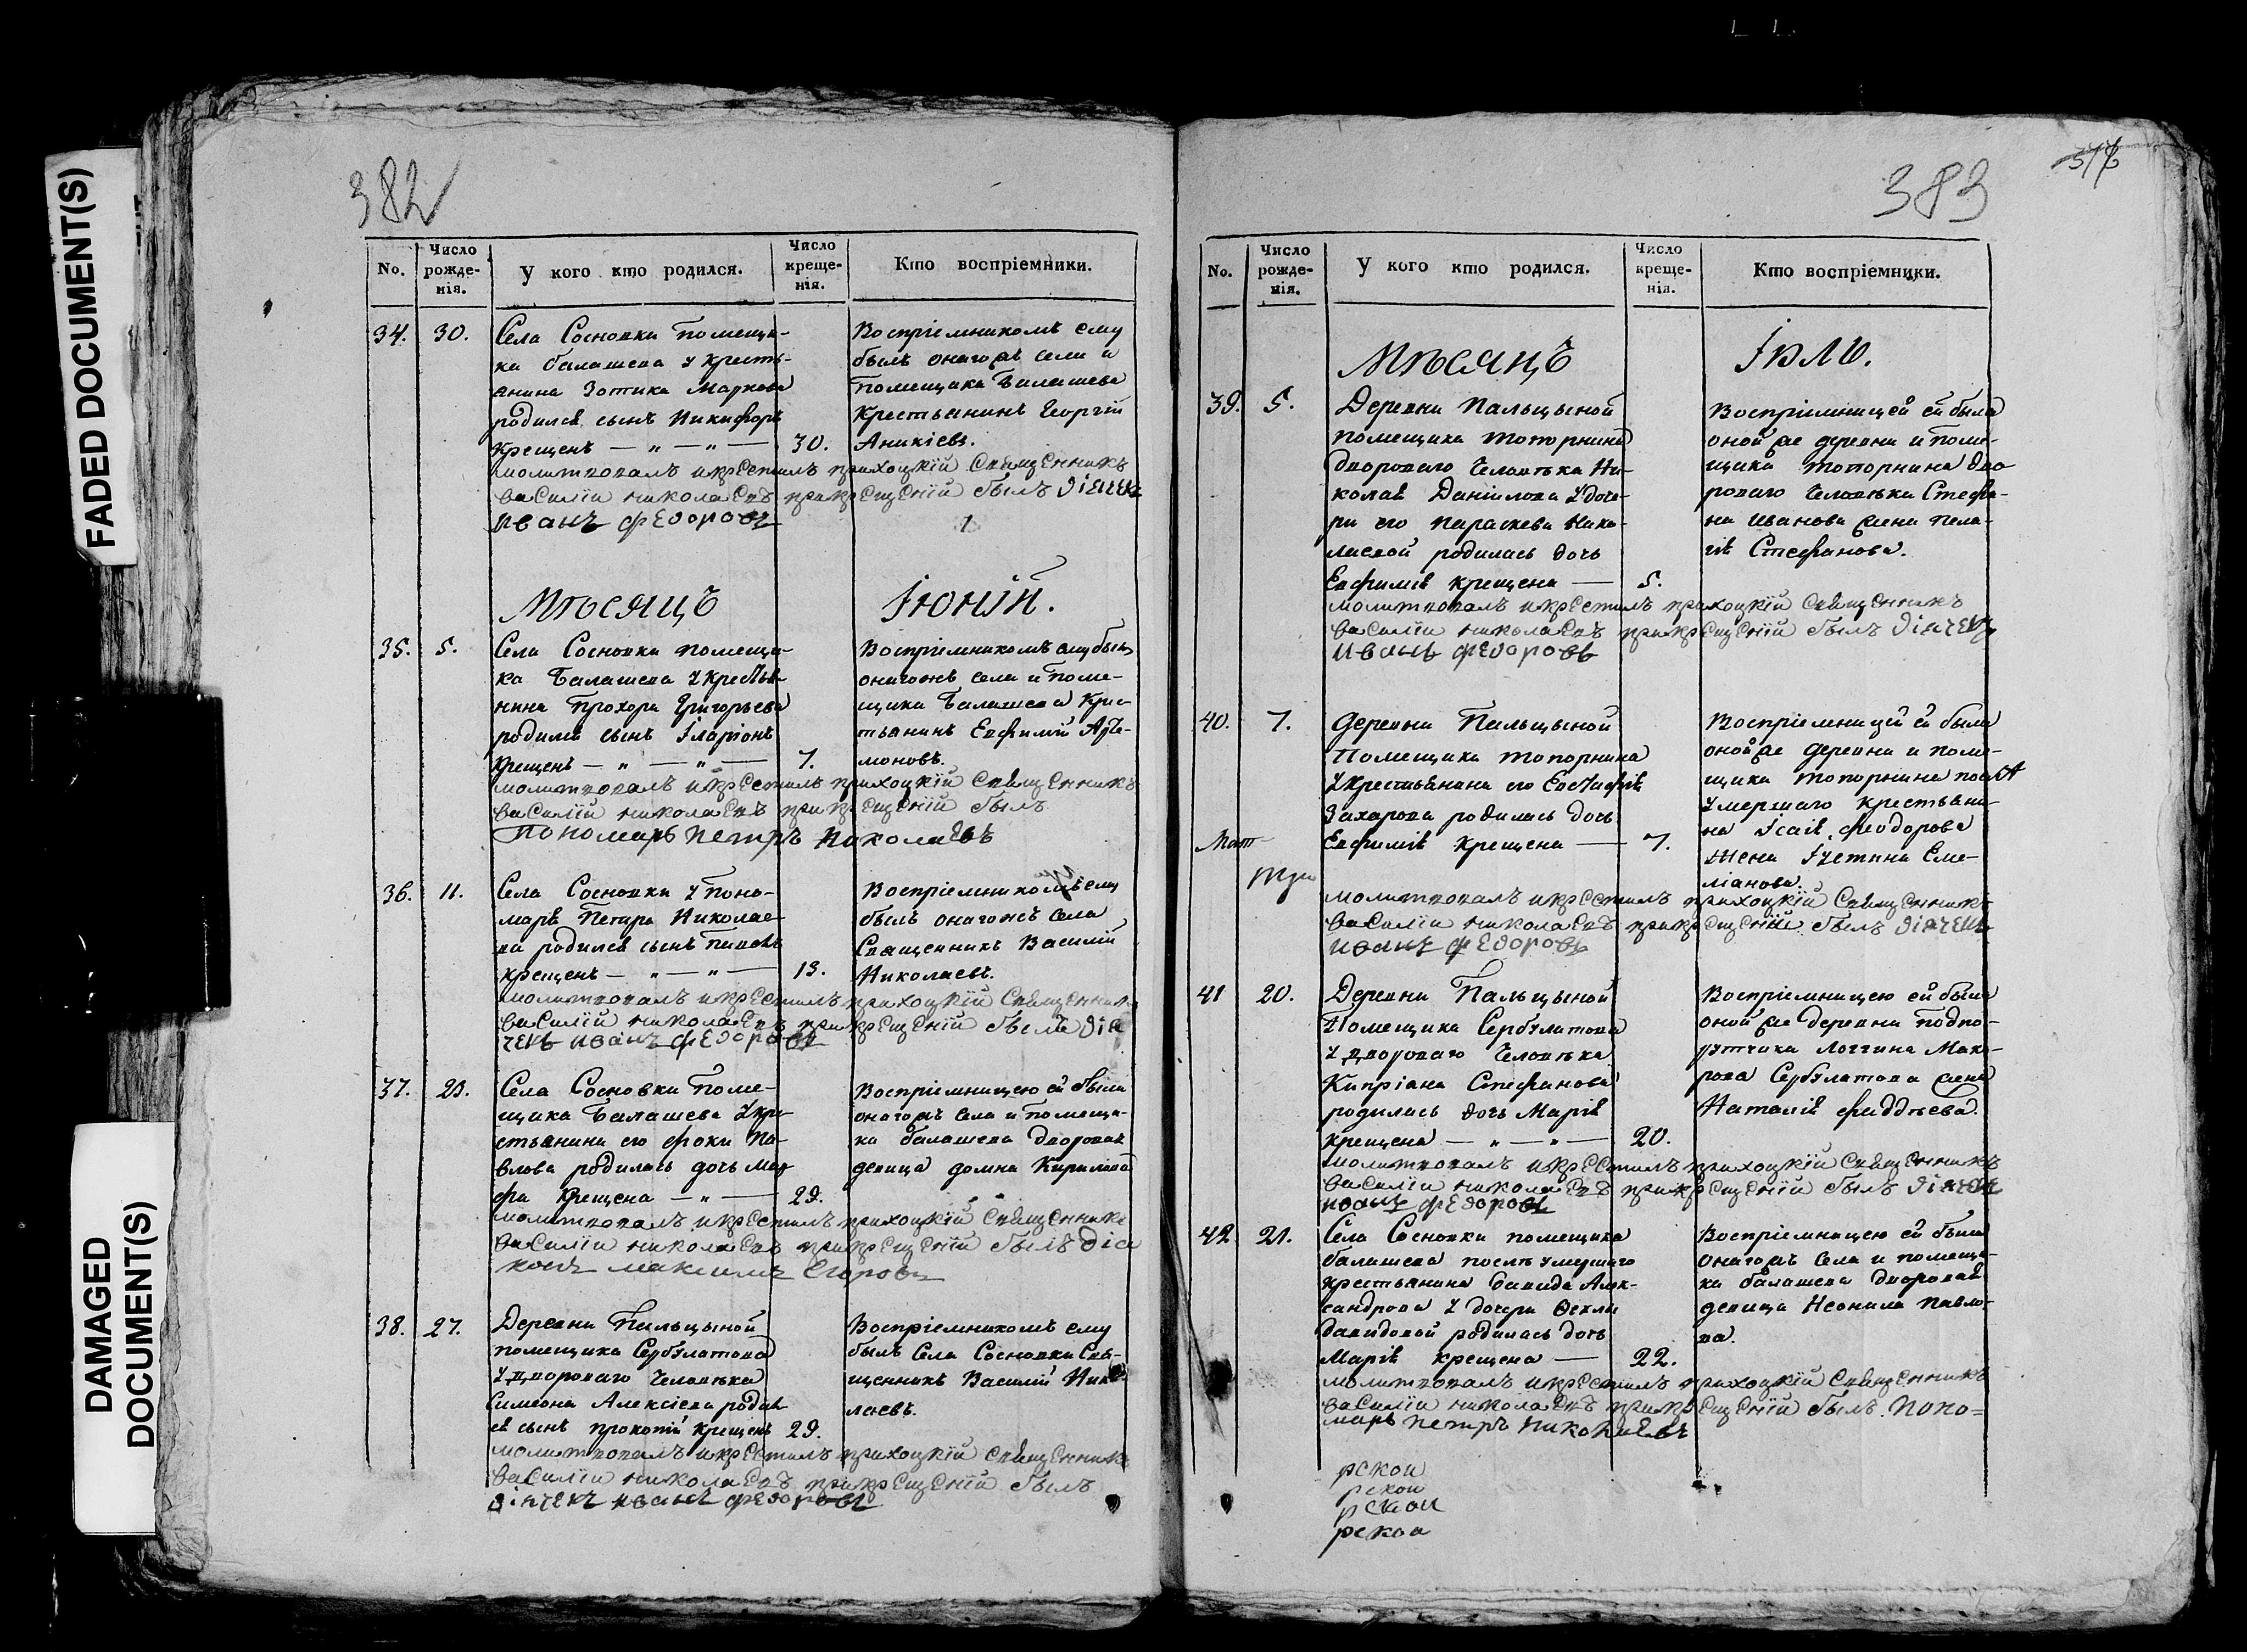 FADED DOCUMENT(S)
DAMAGED
DOCUMENT(S)
382
No.
Число рожде-нія.
У кого кто родился.
Число креще-нія.
Кто воспріемники.
34. 30.
Села Сосновки помещи-
ка балашева у кресть-
янина Зотика Маркова
родился сынъ Никифоръ
крещенъ — „ — „ — 30.
Воспріемникомъ ему
былъ онагожъ села и
помещика Балашева
Крестьянинъ Георгій
Аникіевъ.
молитвовалъ и крестилъ прихоцкій священникъ
василіи николаевъ при крещеніи былъ діячекъ
иванъ федоровъ
Мѣсяцъ Іюній.
35. 5.
Села Сосновки помещи-
ка Балашева у крестья-
нина Прохора Григорьева
родился сынъ Іларіонъ
крещенъ — „ — „ — 7.
Воспріемникомъ ему былъ
онагожъ села и поме-
щика Балашева Кре-
стьянинъ Евфимій Арта-
моновъ.
молитвовалъ и крестилъ прихоцкій священникъ
василій николаевъ при крещеніи былъ
пономарь петръ николаевъ
36. 11.
Села Сосновки у поно-
маря Петра Николае-
ва родился сынъ
крещенъ — „ — „ — 13.
Воспріемникомъ ему
былъ онагожъ села
Священникъ Василій
Николаевъ.
молитвовалъ и крестилъ прихоцкій священникъ
василій николаевъ при крещеніи былъ дія
чекъ иванъ федоровъ
37. 23.
Села Сосновки Поме-
щика Балашева у кре-
стьянина его фоки Па-
влова родилась дочь мар
фа крещена — „ — 29.
Воспріемницею ей была
онагожъ села и помещи-
ка балашева дворовая
девица домна Кирилова
молитвовалъ и крестилъ прихоцкій священникъ
василіи николаевъ при крещеніи былъ діа
конъ максимъ егоровъ
38. 27.
Деревни Пальцыной
помещика Сербулатова
у двороваго человѣка
Симеона Алексіева родил
ся сынъ прокопій крещенъ 29.
Воспріемникомъ ему
былъ Села Сосновки Свя-
щенникъ Василій Нико
лаевъ.
молитвовалъ и крестилъ прихоцкій священникъ
василіи николаевъ при крещеніи былъ
діячекъ иванъ федоровъ
383
No.
Число рожде-нія.
У кого кто родился.
Число креще-нія.
Кто воспріемники.
Мѣсяцъ Іюль.
39. 5.
Деревни Пальцыной
помещика топорнина
двороваго человѣка Ни-
колая Даніилова у доче-
ри его параскева Нико-
лаевой родилась дочь
Евфимія крещена — 5.
Воспріемницей ей была
оной же деревни и поме-
щика топорнина дво
роваго человѣка Стефа-
на Иванова жена пела-
гія Стефанова.
молитвовалъ и крестилъ прихоцкій священникъ
василіи николаевъ при крещеніи былъ діячекъ
иванъ федоровъ
40. 7.
деревни Пальцыной
Помещика топорнина
у крестьянина его Евстафія
Захарова родилась дочь
Евфимія крещена — 7.
Воспріемницей ей была
оной же деревни и поме-
щика топорнина послѣ
умершаго крестьяни-
на Ісаія феодорова
жена Іустина Еме-
ліанова.
молитвовалъ и крестилъ прихоцкій священникъ
василіи николаевъ при крещеніи былъ діячекъ
иванъ федоровъ
41 20.
Деревни Пальцыной
Помещика Сербулатова
у двороваго человѣка
Кипріана Стефанова
родилась дочь Марія
крещена — „ — „ — 20.
Воспріемницею ей была
оной же деревни подпо-
рутчика Логгина Мака-
рова Сербулатова жена
Наталія фаддѣева.
молитвовалъ и крестилъ прихоцкій священникъ
василіи николаевъ при крещеніи былъ діячекъ
иванъ федоровъ
42. 21.
Села Сосновки помещика
балашева послѣ умершаго
крестьянина давида Алек-
сандрова у дочери Ѳеклы
давидовой родилась дочь
Марія крещена — 22.
Воспріемницею ей была
онагожъ села и помещи-
ка балашева дворовая
девица Неонила Павло-
ва.
молитвовалъ и крестилъ прихоцкій священникъ
василіи николаевъ при крещеніи былъ поно=
марь петръ николаевъ
рскои
рскои
рскои
рскои